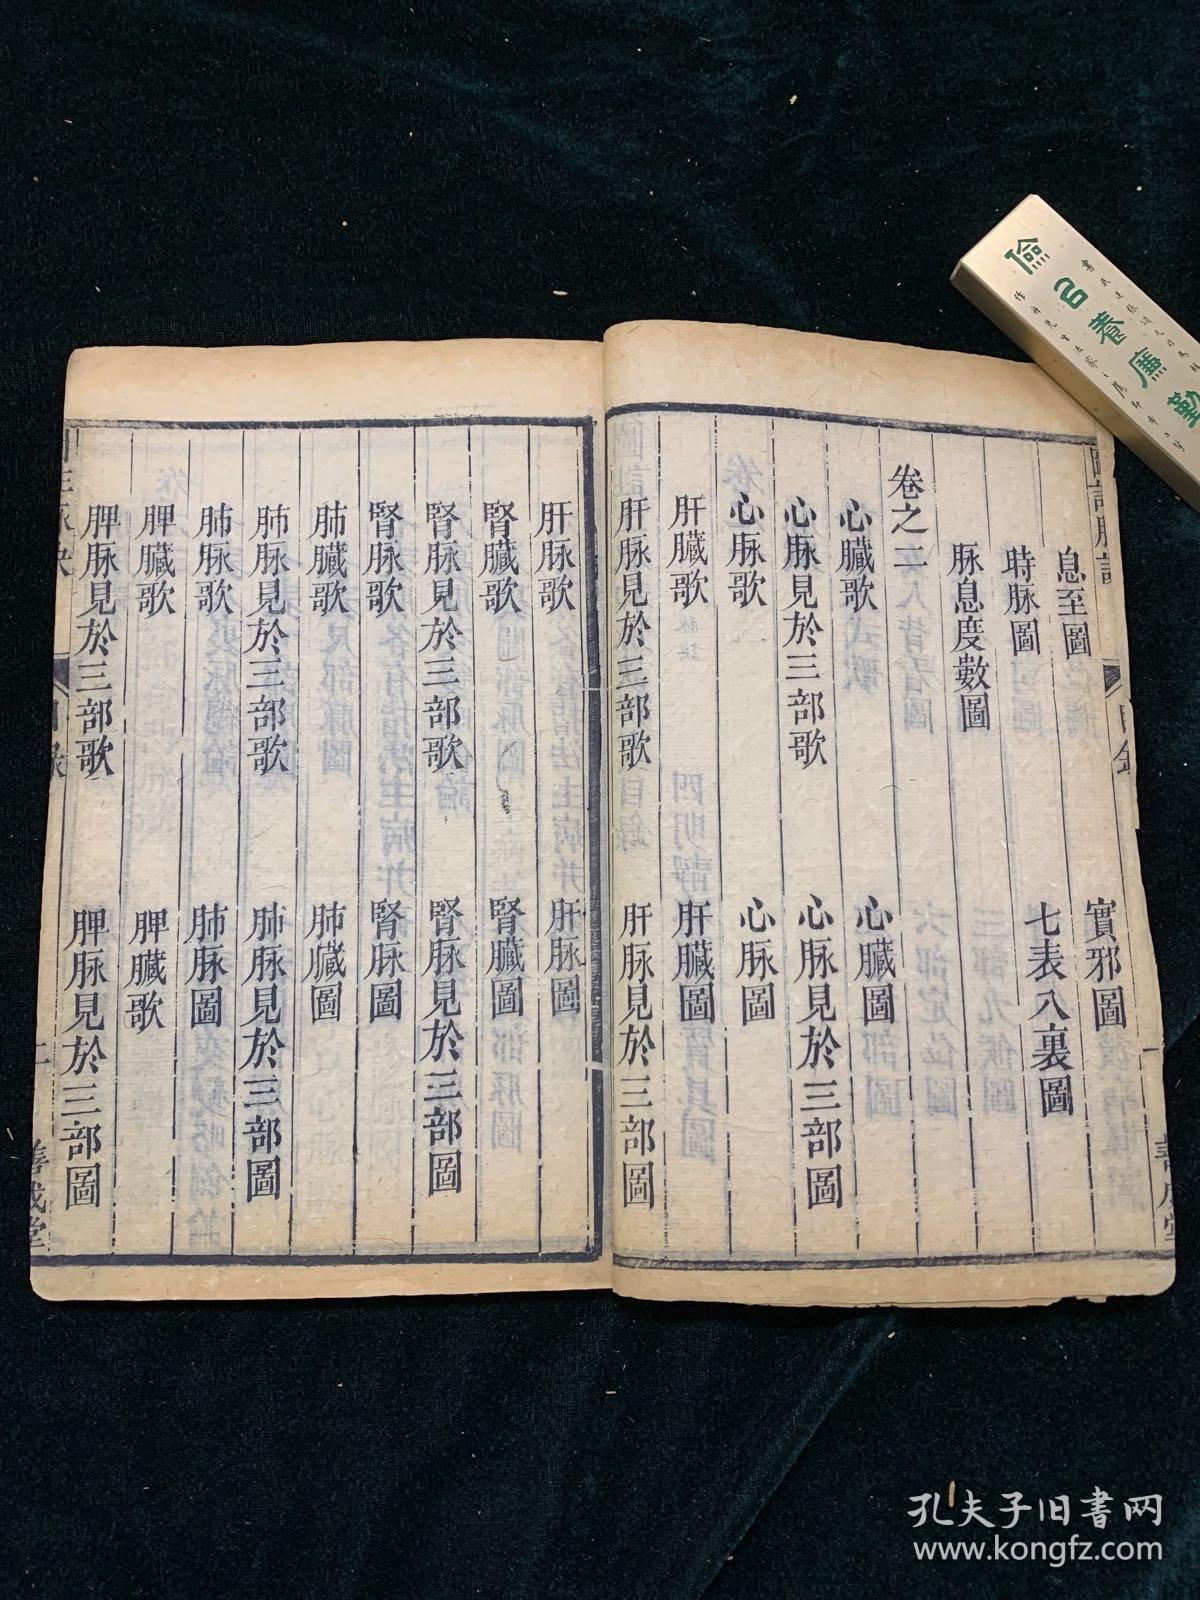 息至圖　實邪圖
時脉圖　七表八裏圖
脉息度數圖
卷之二
心臟歌　心臟圖
心脉見於三部歌　心脉見於三部圖
心脉歌　心脉圖
肝臟歌　肝臟圖
肝脉見於三部歌　肝脉見於三部圖
肝脉歌　肝脉圖
腎臟歌　腎臟圖
腎脉見於三部歌　腎脉見於三部圖
腎脉歌　腎脉圖
肺臟歌　肺臟圖
肺脉見於三部歌　肺脉見於三部圖
肺脉歌　肺脉圖
脾臟歌　脾臟歌
脾脉見於三部歌　脾脉見於三部圖
善成堂
儉己養廉勤
孔夫子旧书网
www.kongfz.com